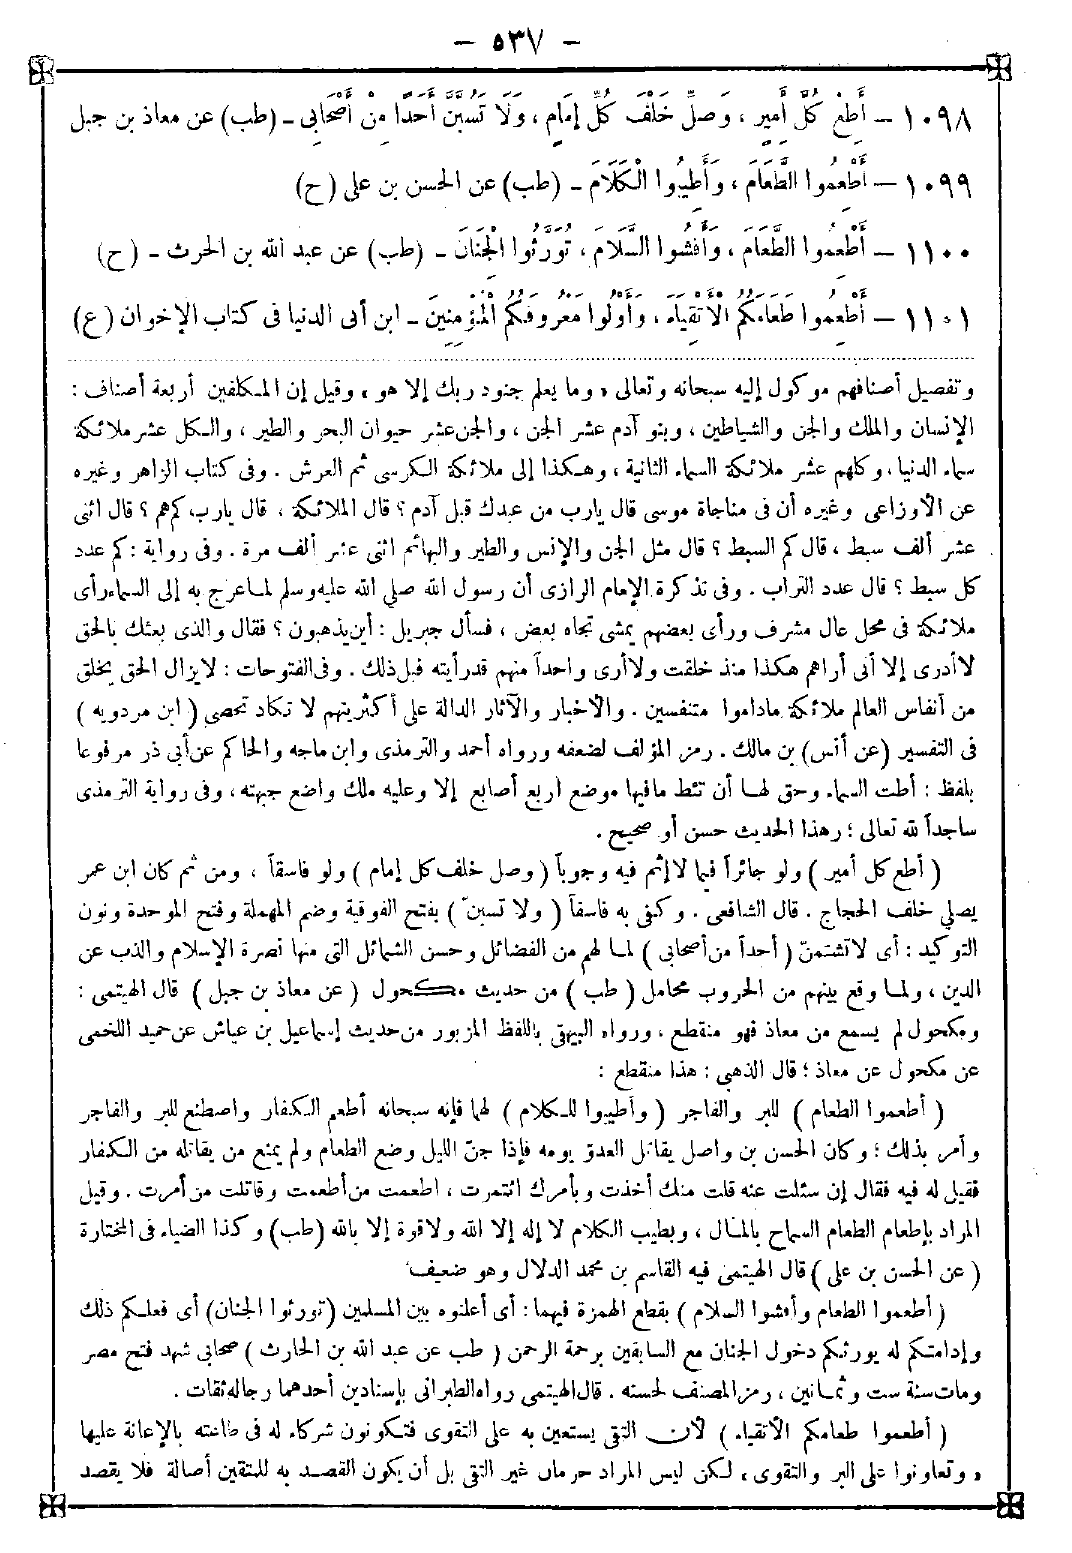 – ٥٣٧ –
١٠٩٨ – أَطِعْ كُلَّ أَمِيرٍ ، وَصَلِّ خَلْفَ كُلِّ إِمَامٍ ، وَلَا تَسُبَّنَّ أَحَدًا مِنْ أَصْحَابِي – (طب) عن معاذ بن جبل
١٠٩٩ – أَطْعِمُوا الطَّعَامَ ، وَأَطِيبُوا الْكَلَامَ – (طب) عن الحسن بن على (ح)
١١٠٠ – أَطْعِمُوا الطَّعَامَ ، وَأَفْشُوا السَّلَامَ ، تُورَثُوا الْجِنَانَ – (طب) عن عبد الله بن الحرث – (ح)
١١٠١ – أَطْعِمُوا طَعَامَكُمُ الْأَتْقِيَاءَ ، وَأَوْلُوا مَعْرُوفَكُمُ الْمُؤْمِنِينَ – ابن أبى الدنيا فى كتاب الإخوان (ع)
وتفصيل أصنافهم موكول إليه سبحانه وتعالى « وما يعلم جنود ربك إلا هو » وقيل إن المكلفين أربعة أصناف :
الإنسان والملك والجن والشياطين ، وبنو آدم عشر الجن ، والجن عشر حيوان البحر والطير ، والكل عشر ملائكة
سماء الدنيا ، وكلهم عشر ملائكة السماء الثانية ، وهكذا إلى ملائكة الكرسى ثم العرش . وفى كتاب الزاهر وغيره
عن الأوزاعى وغيره أن فى مناجاة موسى قال يارب من عبدك قبل آدم ؟ قال الملائكة ، قال يارب كم هم ؟ قال اثنى
عشر ألف سبط ، قال كم السبط ؟ قال مثل الجن والإنس والطير والبهائم اثنى عشر ألف مرة . وفى رواية : كم عدد
كل سبط ؟ قال عدد التراب . وفى تذكرة الإمام الرازى أن رسول الله صلي الله عليه وسلم لما عرج به إلى السماء رأى
ملائكة فى محل عال مشرف ورأى بعضهم يمشى تجاه بعض ، فسأل جبريل : أين يذهبون ؟ فقال والذى بعثك بالحق
لا أدرى إلا أنى أراهم هكذا منذ خلقت ولا أرى واحداً منهم قد رأيته قبل ذلك . وفى الفتوحات : لا يزال الحق يخلق
من أنفاس العالم ملائكة ماداموا متنفسين . والأخبار والآثار الدالة على أكثريتهم لا تكاد تحصى ( ابن مردويه )
فى التفسير (عن أنس) بن مالك . رمز المؤلف لضعفه ورواه أحمد والترمذى وابن ماجه والحاكم عن أبى ذر مرفوعا
بلفظ : أطت السماء وحق لها أن تئط مافيها موضع أربع أصابع إلا وعليه ملك واضع جبهته ، وفى رواية الترمذى
ساجداً لله تعالى ؛ وهذا الحديث حسن أو صحيح .
( أطع كل أمير ) ولو جائراً فيما لا إثم فيه وجوباً ( وصل خلف كل إمام ) ولو فاسقاً ، ومن ثم كان ابن عمر
يصلي خلف الحجاج . قال الشافعى . وكفى به فاسقاً ( ولا تسبنّ ) بفتح الفوقية وضم المهملة وفتح الموحدة ونون
التوكيد : أى لا تشتمنّ ( أحداً من أصحابى ) لما لهم من الفضائل وحسن الشمائل التى منها نصرة الإسلام والذب عن
الدين ، ولما وقع بينهم من الحروب محامل ( طب ) من حديث مكحول ( عن معاذ بن جبل ) قال الهيتمى :
ومكحول لم يسمع من معاذ فهو منقطع ، ورواه البيهقى باللفظ المزبور من حديث إسماعيل بن عياش عن حميد اللخمى
عن مكحول عن معاذ ؛ قال الذهبى : هذا منقطع :
( أطعموا الطعام ) للبر والفاجر ( وأطيبوا للكلام ) لهما فإنه سبحانه أطعم الكفار واصطنع للبر والفاجر
وأمر بذلك ؛ وكان الحسن بن واصل يقاتل العدوّ يومه فإذا جنّ الليل وضع الطعام ولم يمنع من يقاتله من الكفار
فقيل له فيه فقال إن سئلت عنه قلت منك أخذت وبأمرك ائتمرت ، اطعمت من أطعمت وقاتلت من أمرت . وقيل
المراد بإطعام الطعام السماح بالمال ، وبطيب الكلام لا إله إلا الله ولا قوة إلا بالله (طب) وكذا الضياء فى المختارة
( عن الحسن بن على ) قال الهيتمى فيه القاسم بن محمد الدلال وهو ضعيف
( أطعموا الطعام وأفشوا السلام ) بقطع الهمزة فيهما : أى أعلنوه بين المسلمين (تورثوا الجنان) أى فعلكم ذلك
وإدامتكم له يورثكم دخول الجنان مع السابقين برحمة الرحمن ( طب عن عبد الله بن الحارث ) صحابى شهد فتح مصر
ومات سنة ست وثمانين ، رمز المصنف لحسنه . قال الهيتمى رواه الطبرانى بإسنادين أحدهما رجاله ثقات .
( أطعموا طعامكم الأتقياء ) لأن التقى يستعين به على التقوى فتكونون شركاء له فى طاعته بالإعانة عليها
« وتعاونوا على البر والتقوى » لكن ليس المراد حرمان غير التقى بل أن يكون القصد به للمتقين أصالة فلا يقصد